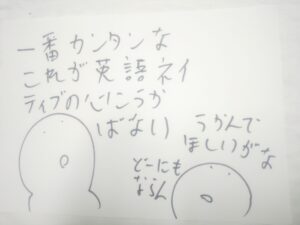 一番カンタンな
これが英語ネイ
ティブの心にうか
ばない
うかんで
ほしいがな
どーにも
ならん